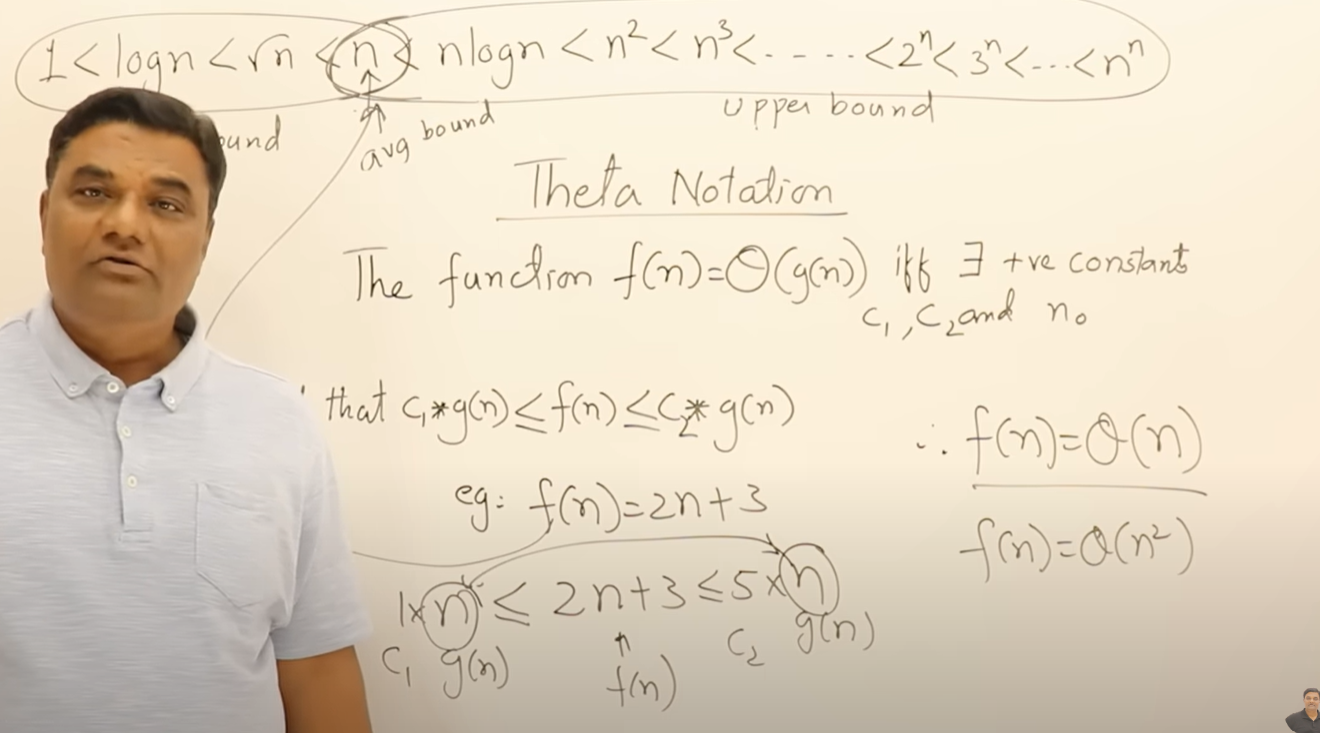 1 < logn < √n < n < nlogn < n² < n³ < - - - - - < 2ⁿ < 3ⁿ < --- < nⁿ
avg bound
Upper bound
Theta Notation
The function f(n)=Θ(g(n)) iff ∃ +ve constants
c₁, c₂ and n₀
that c₁*g(n) ≤ f(n) ≤ c₂* g(n)
∴ f(n)=Θ(n)
eg: f(n)=2n+3
f(n)=Θ(n²)
1×n ≤ 2n+3 ≤ 5×n
c₁ g(n) f(n) c₂ g(n)